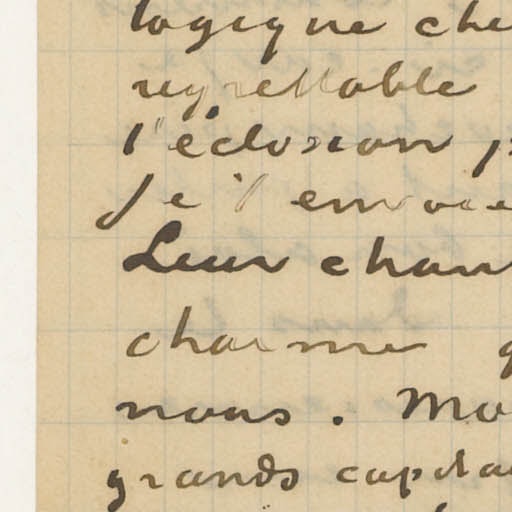 logique che
regrettable
l'éclosion p
Je t'envoie
Leur chan
charme q
nous. Mo
grands capita